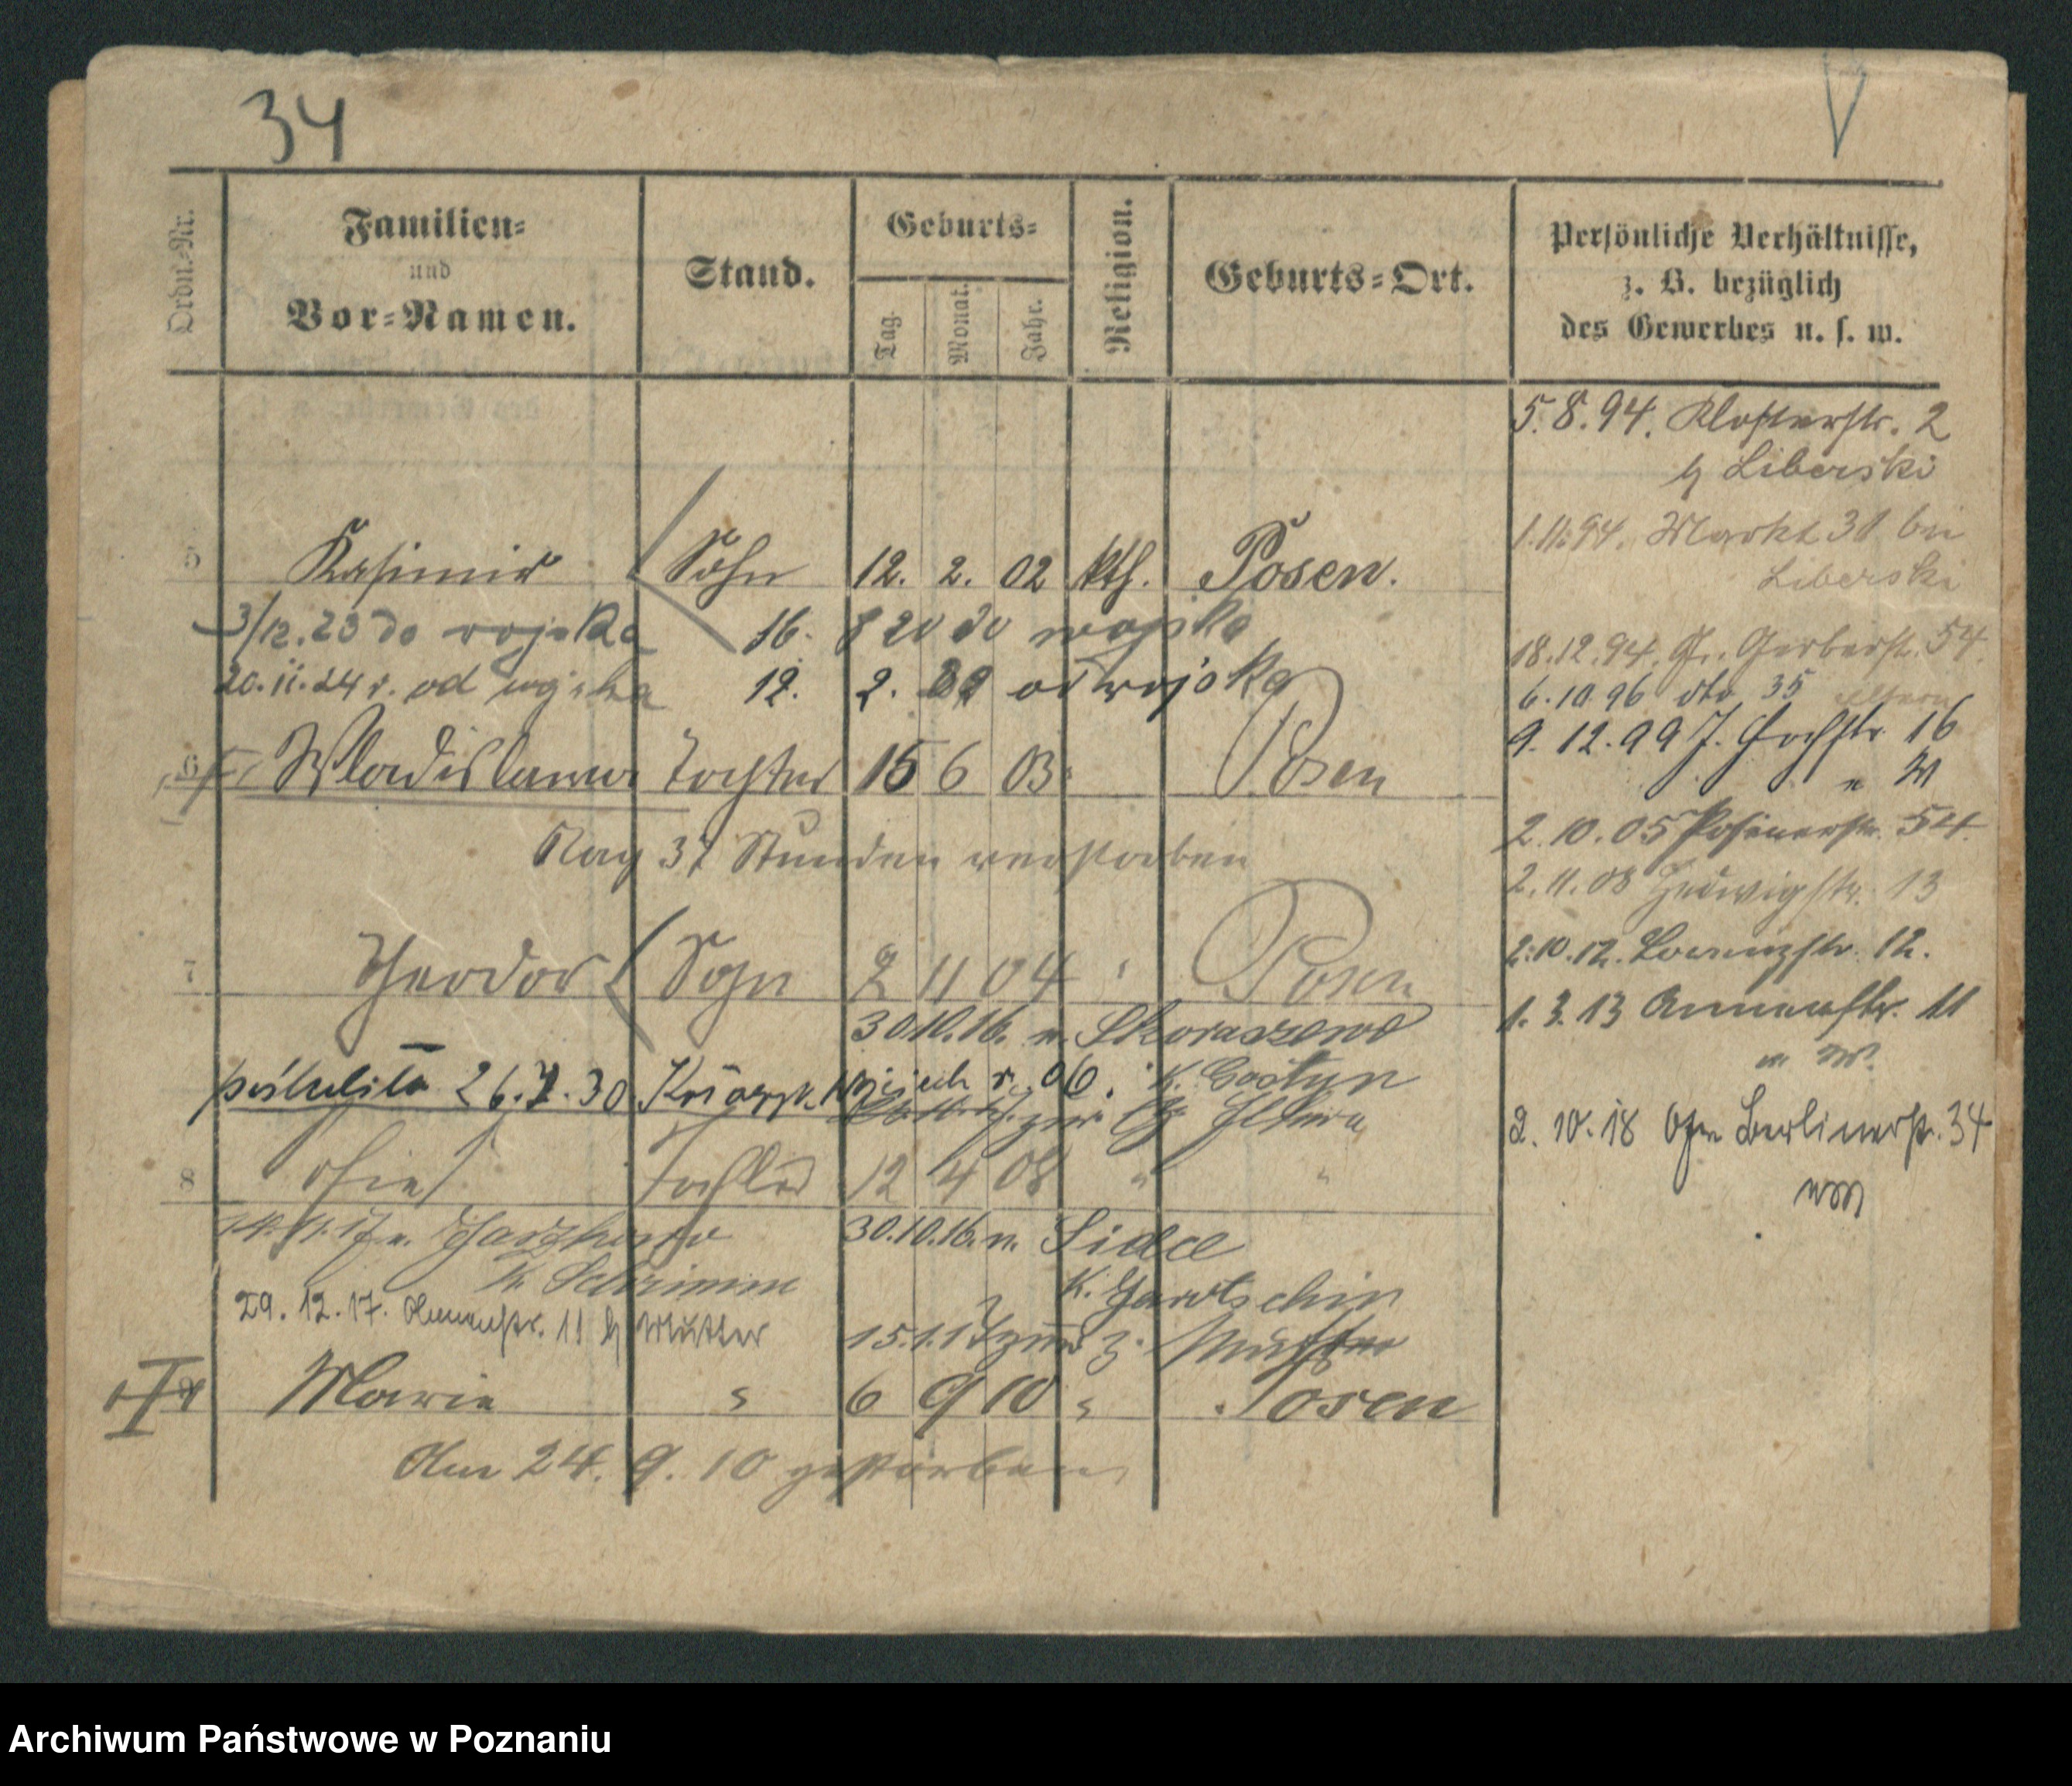 34
Ordn.-Nr.
Familien-
und
Vor-Namen.
Stand.
Geburts-
Tag.
Monat.
Jahr.
Religion.
Geburts-Ort.
Persönliche Verhältnisse,
z. B. bezüglich
des Gewerbes u. s. w.
5.8.94. Klosterstr. 2
b Liberski
1.11.94. Markt 31 bei
Liberski
18.12.94. Gr. Gerberstr. 54
6.10.96 dto 35
9.12.99 J. 16
" W
2.10.05 Posenerstr. 54.
2.11.08 Hedwigstr. 13
2.10.12. Lorenzstr. 12.
1.3.13 Annenstr. 11
2.10.18 Berlinerstr. 34
5 Kasimir Sohn 12. 2. 02 kth. Posen.
3/12.23 do wojska 16. 8 20 do wojska
20.11.24 r. od wojska 12. 2. od wojska
6 Wladislawa Tochter 15 6 03 Posen
Nach 31 Stunden verstorben
7 Theodor Sohn 2 11 04 " Posen
30.10.16. n. Skoraszewo
26.7.30 r. 06. K. Gostyn
8 Tochter 12 4 08 " "
30.10.16. n. Siedle
K. Schrimm K. Jarotschin
29.12.17. Annenstr. 11 b Mutter 15.1.17 zur Mutter
9 Marie " 6 9 10 " Posen
Am 24. 9. 10 gestorben
Archiwum Państwowe w Poznaniu